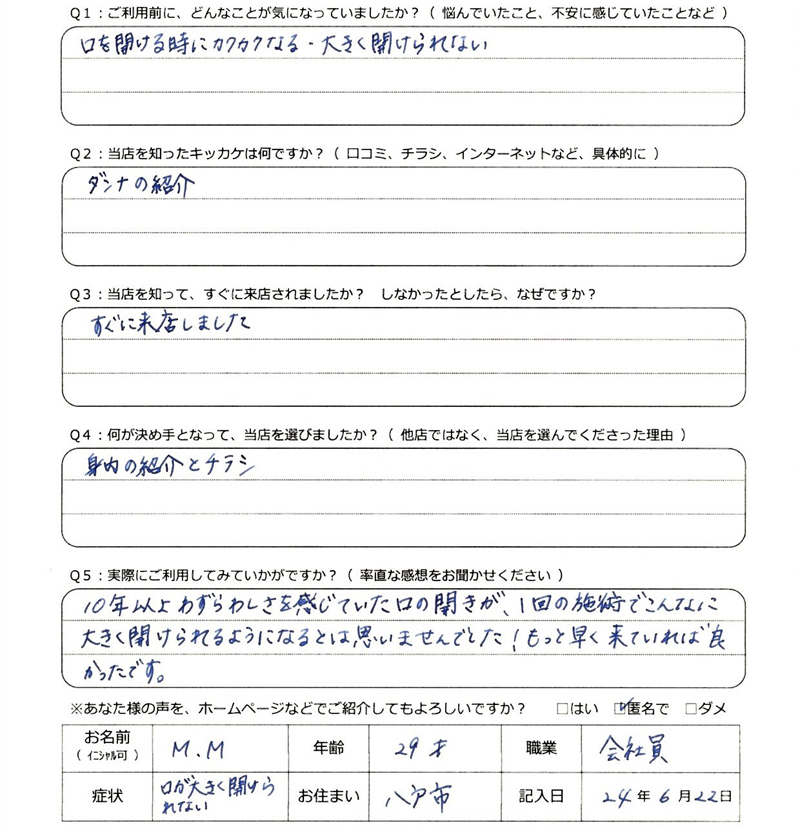 Q1：ご利用前に、どんなことが気になっていましたか？（ 悩んでいたこと、不安に感じていたことなど ）
口を開ける時にカクカクなる・大きく開けられない
Q2：当店を知ったキッカケは何ですか？（ 口コミ、チラシ、インターネットなど、具体的に ）
ダンナの紹介
Q3：当店を知って、すぐに来店されましたか？　しなかったとしたら、なぜですか？
すぐに来店しました
Q4：何が決め手となって、当店を選びましたか？（ 他店ではなく、当店を選んでくださった理由 ）
身内の紹介とチラシ
Q5：実際にご利用してみていかがですか？（ 率直な感想をお聞かせください ）
10年以上わずらわしさを感じていた口の開きが、1回の施術でこんなに
大きく開けられるようになるとは思いませんでした！もっと早く来ていれば良
かったです。
※あなた様の声を、ホームページなどでご紹介してもよろしいですか？　□はい　☑匿名で　□ダメ
お名前（ イニシャル可 ）　M.M　年齢　29才　職業　会社員
症状　口が大きく開けられない　お住まい　八戸市　記入日　24年6月22日